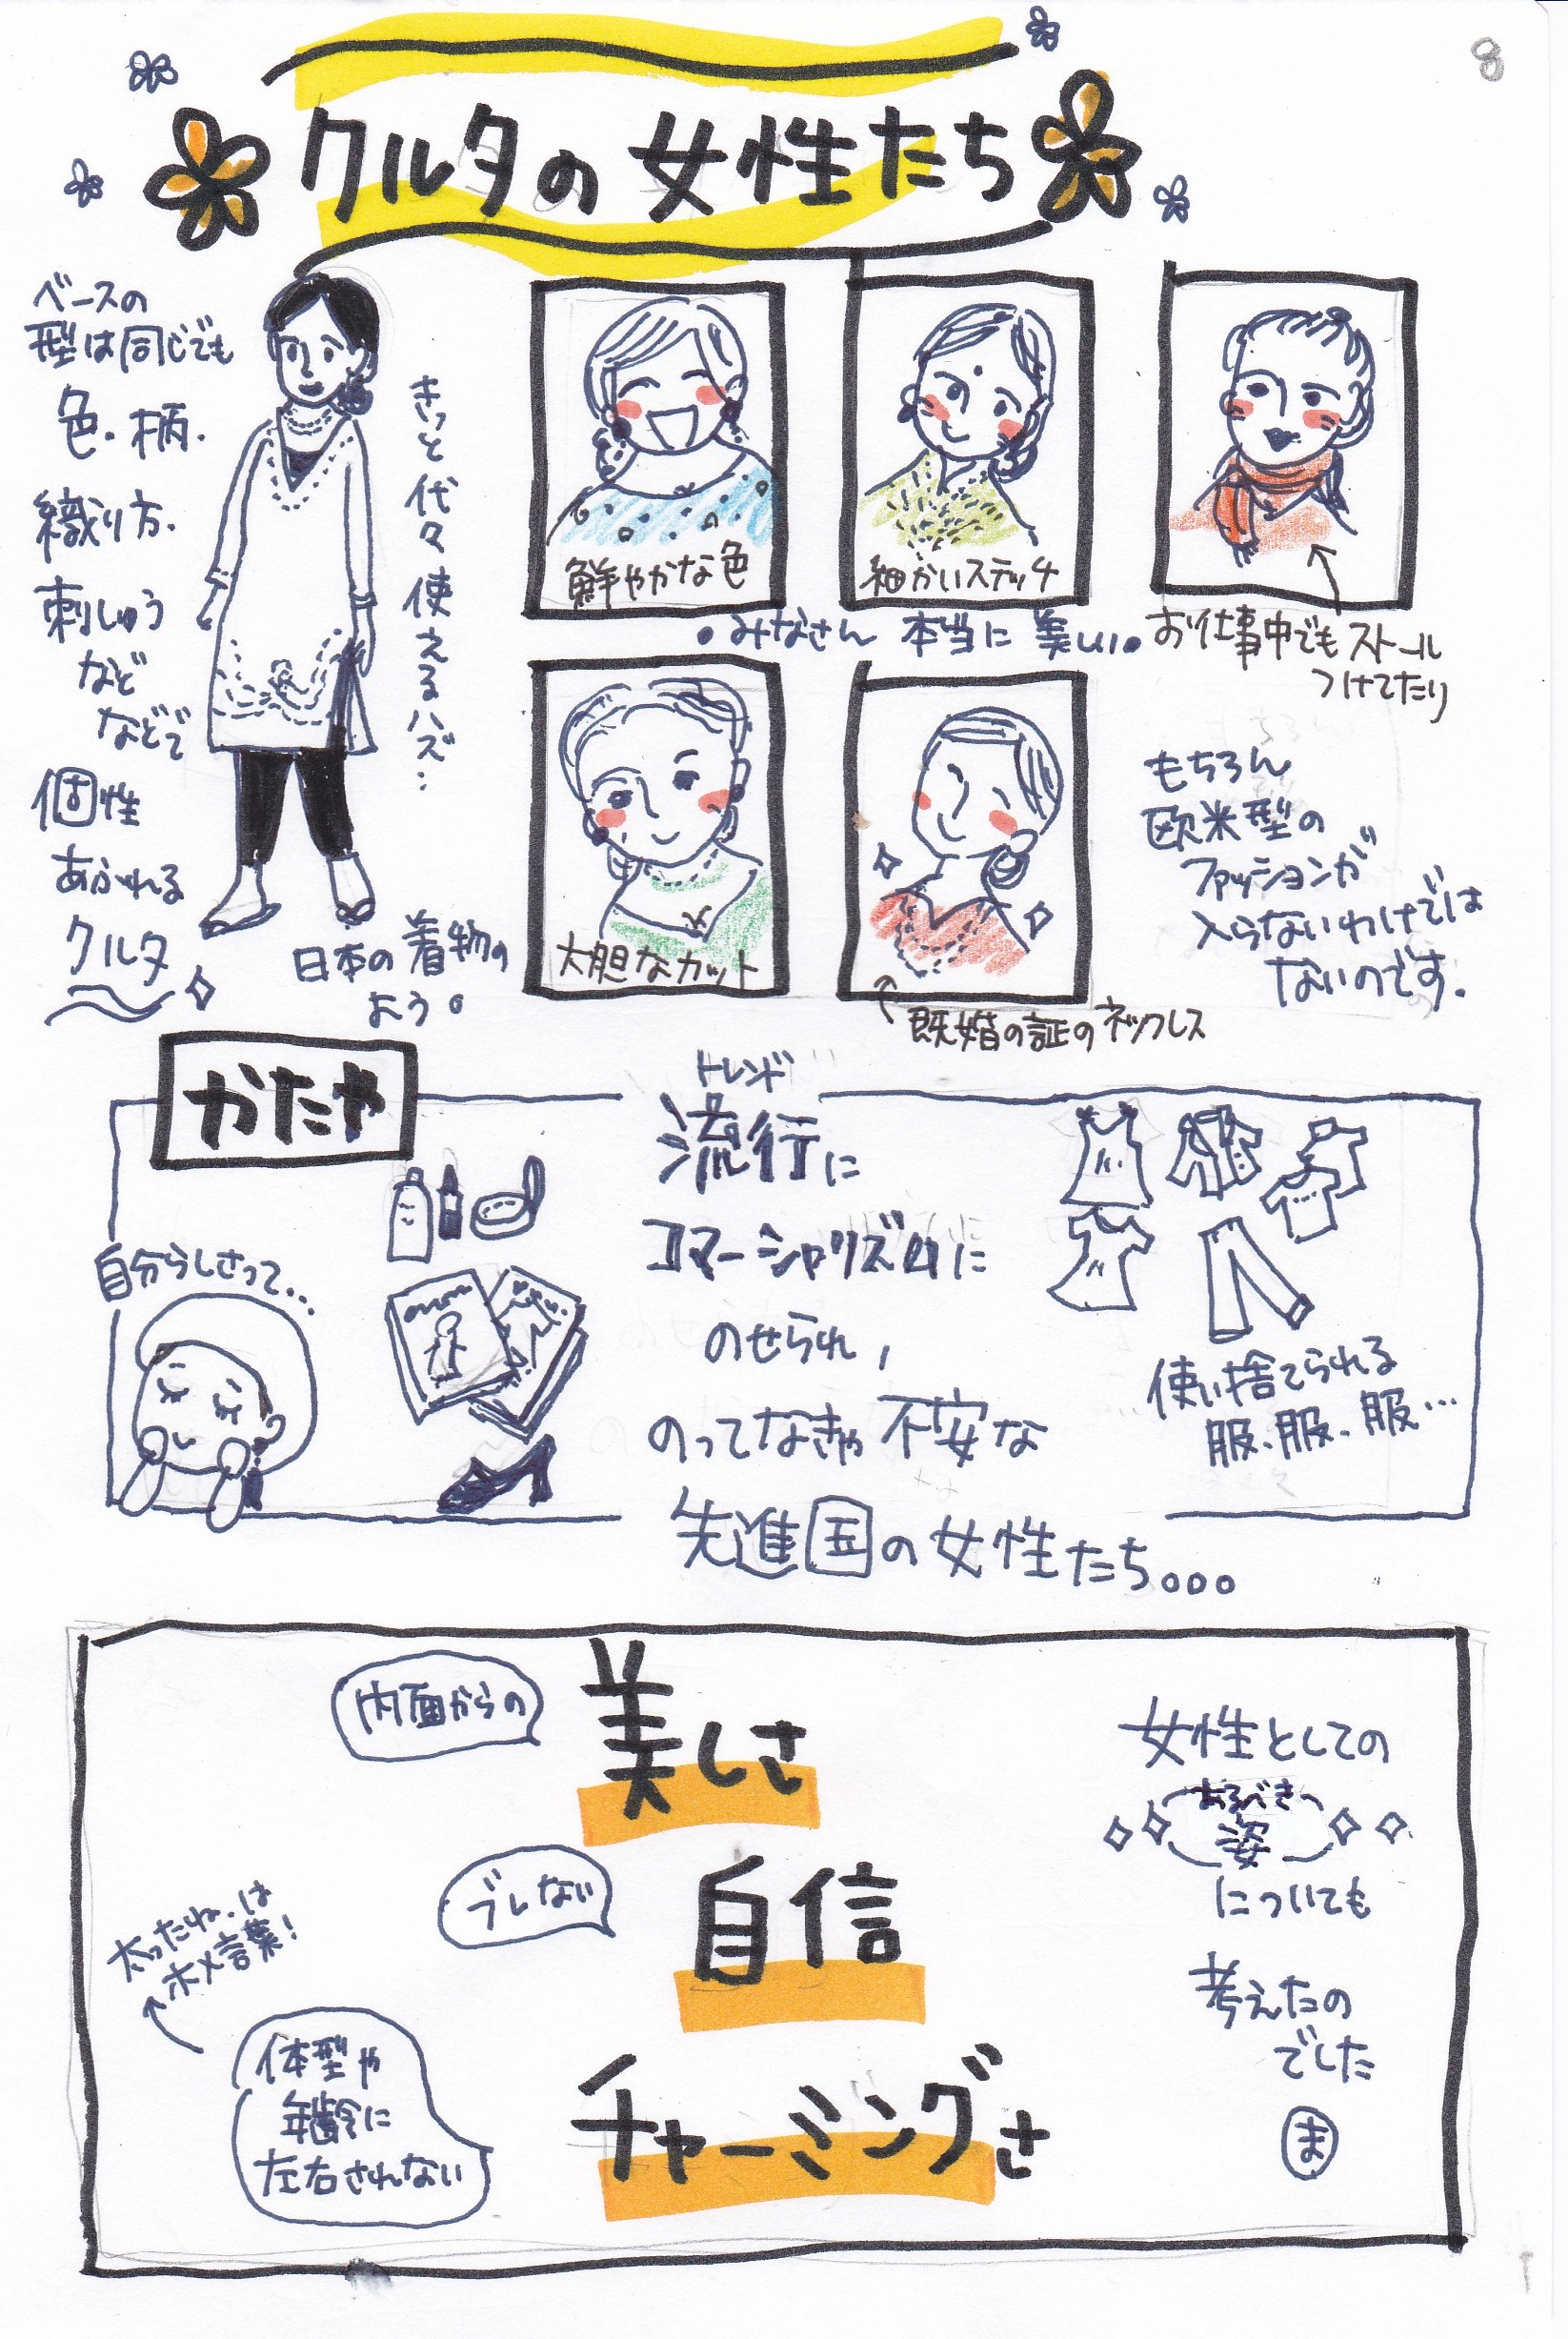 8
クルタの女性たち
ベースの
型は同じでも
色・柄・
織り方・
刺しゅう
など
などで
個性
あふれる
クルタ
きっと代々使えるハズ…
日本の着物の
よう。
鮮やかな色
細かいステッチ
お仕事中でもストール
つけてたり
・みなさん 本当に 美しい。
大胆なカット
既婚の証のネックレス
もちろん
欧米型の
ファッションが
入らないわけでは
ないのです.
かたや
自分らしさって…
トレンド
流行に
コマーシャリズムに
のせられ,
のってなきゃ不安な
先進国の女性たち。。。
使い捨てられる
服、服、服…
内面からの
美しさ
ブレない
自信
太ったね、は
ホメ言葉!
体型や
年齢に
左右されない
チャーミングさ
女性としての
あるべき
姿
についても
考えたの
でした
ま